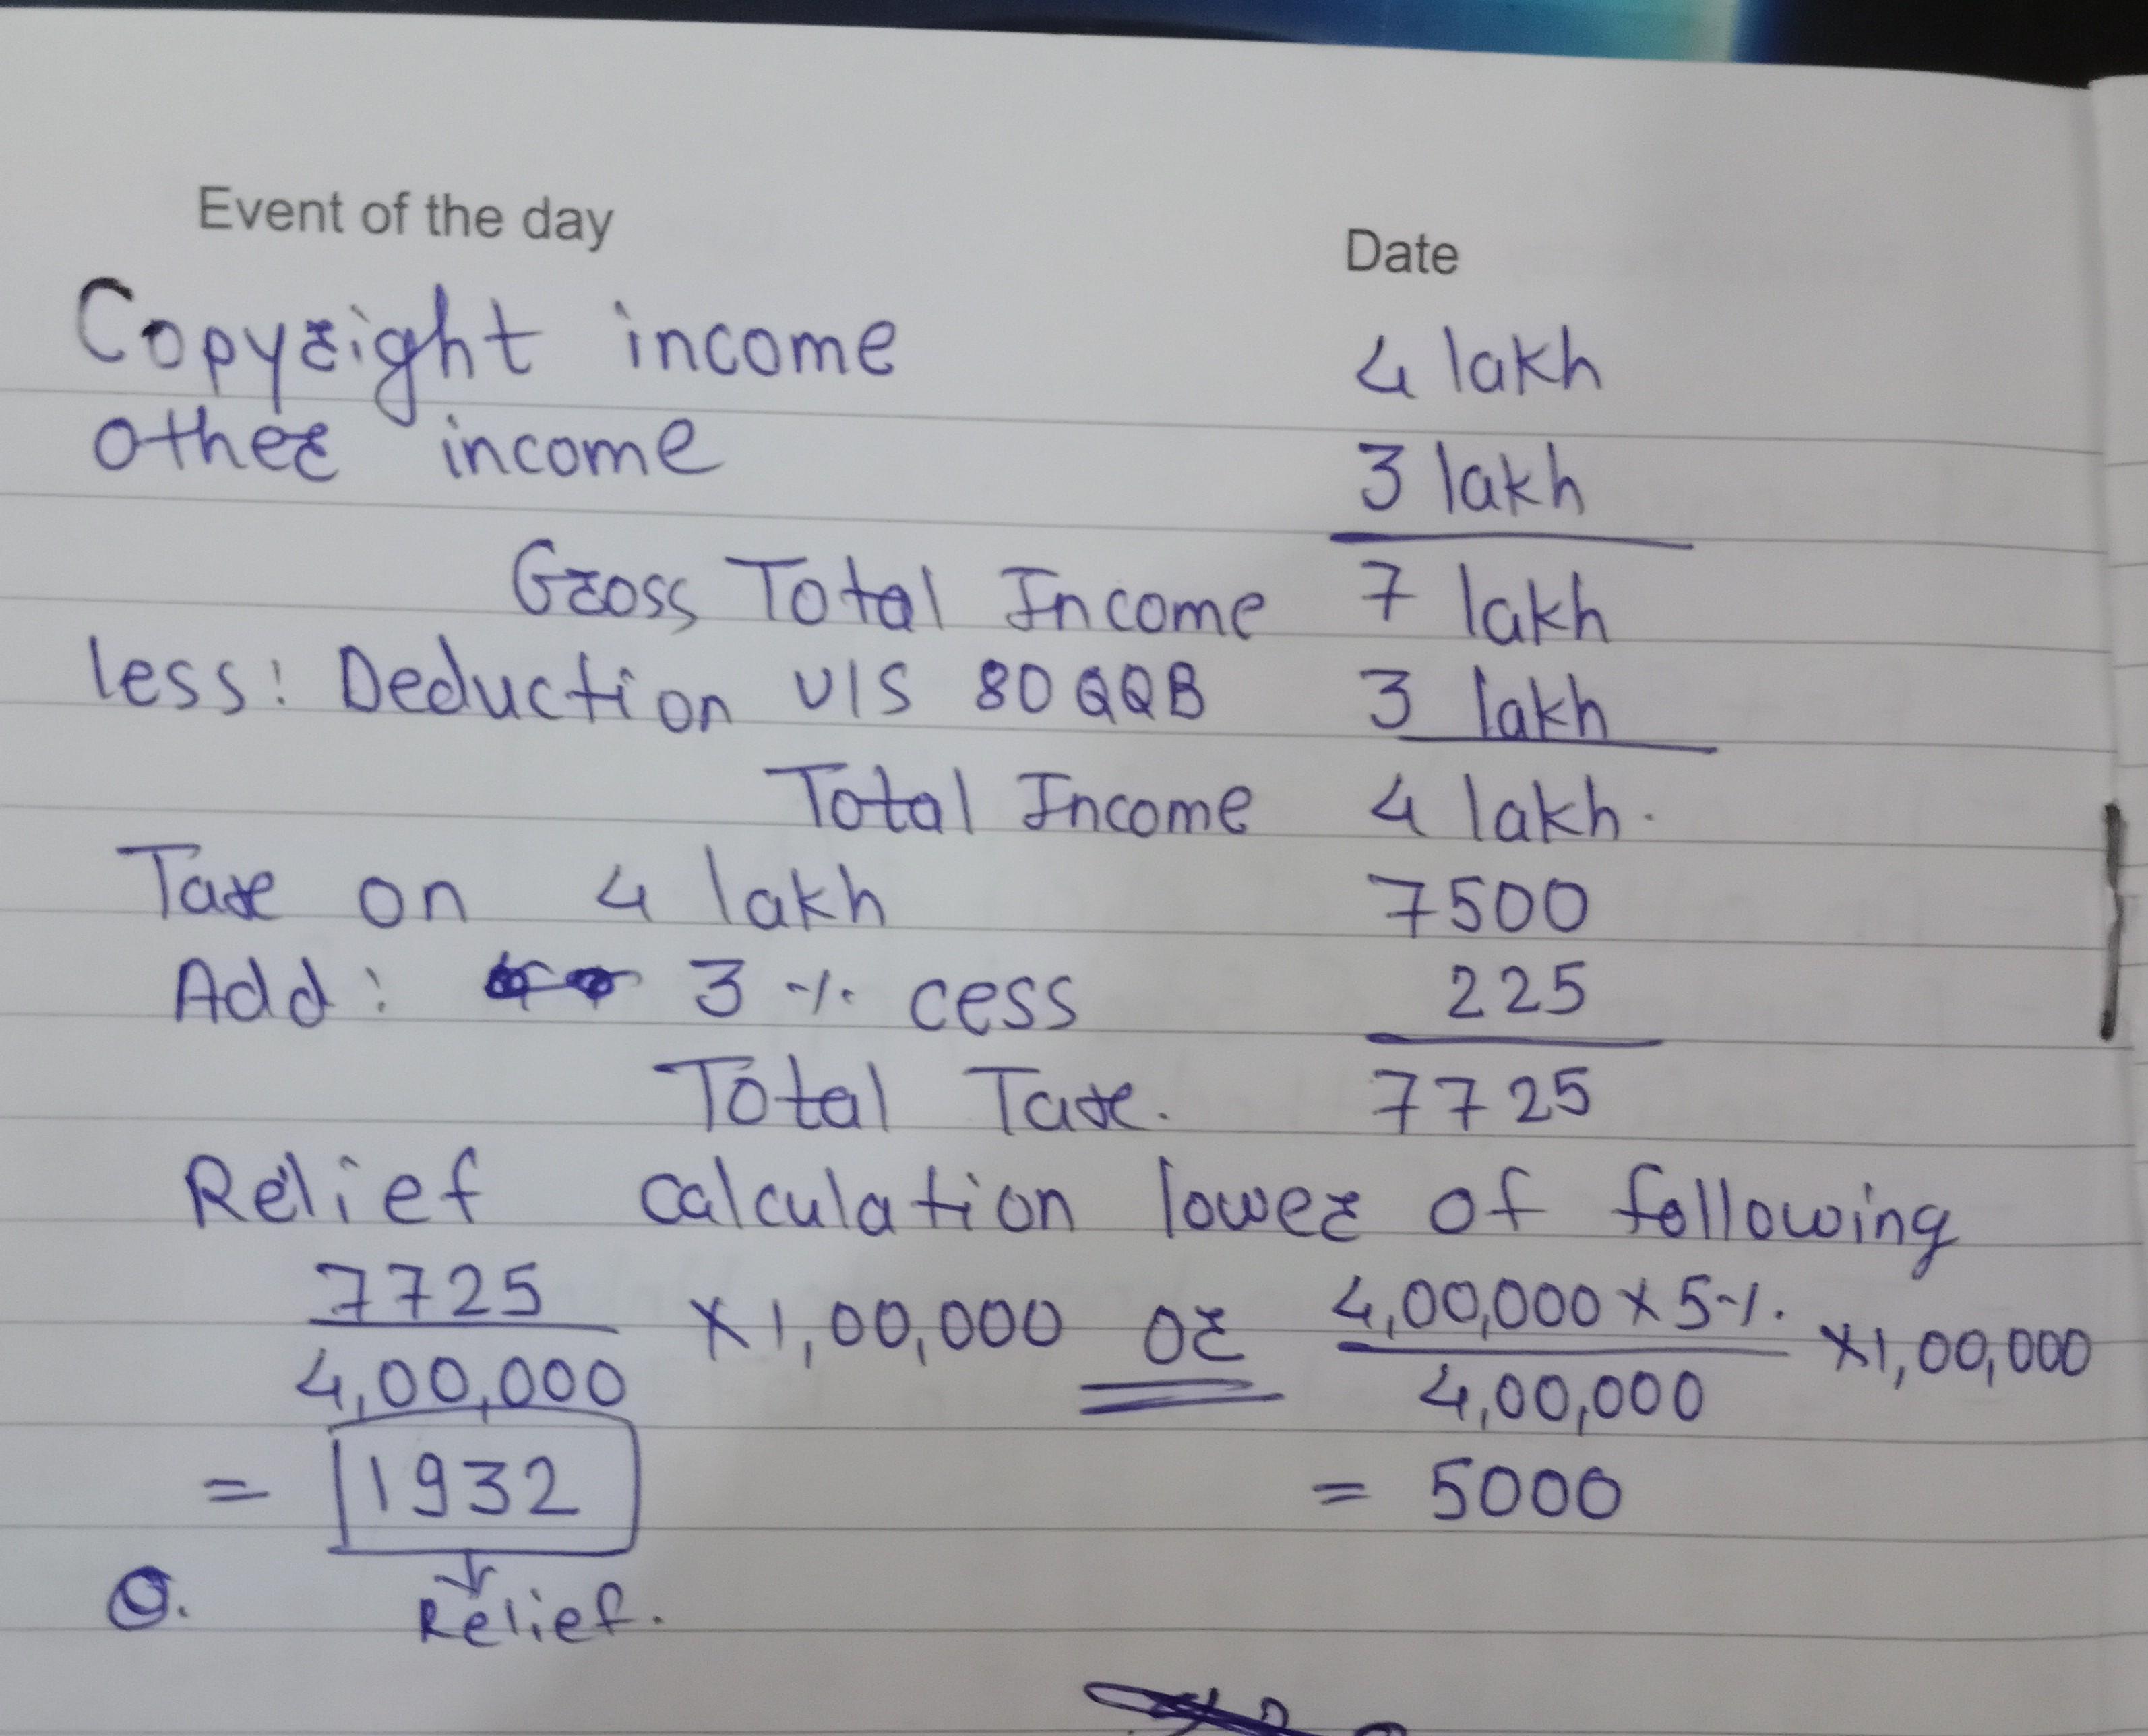 Event of the day Date
Copyright income 4 lakh
other income 3 lakh
Gross Total Income 7 lakh
less: Deduction U/S 80QQB 3 lakh
Total Income 4 lakh.
Tax on 4 lakh 7500
Add: 3 % cess 225
Total Tax. 7725
Relief calculation lower of following
7725 / 4,00,000 × 1,00,000 or 4,00,000 × 5% / 4,00,000 × 1,00,000
= 1932 = 5000
Relief.